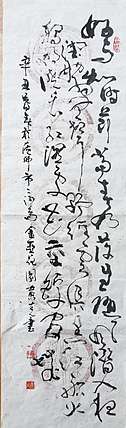 好雨知时节当春乃发生随风潜入夜
润物细无声野径云俱黑江船火
独明晓看红湿处花重锦官城
辛丑春於市金花园書